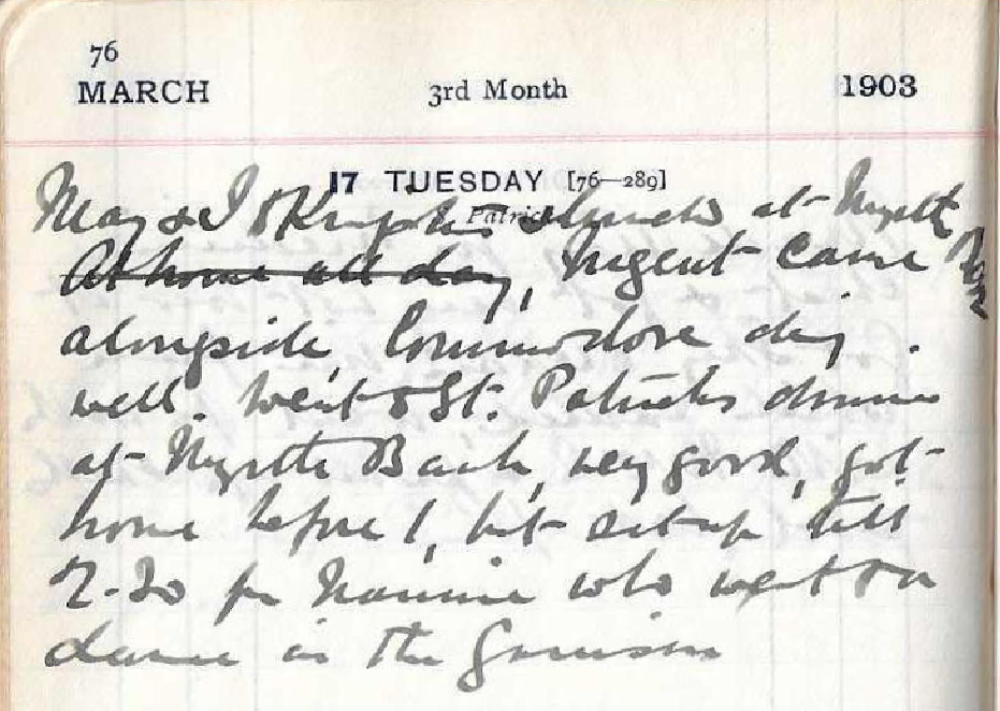 76
MARCH 3rd Month 1903
17 TUESDAY [76—289]
S. Patrick
May & I to Kemp's lunch at Myrtle Bank
At home all day, Regent came
alongside, Commodore dug
well. Went to St. Patricks dinner
at Myrtle Bank, very good, got
home before 1, but sat up till
2-30 for Nannie who went to a
dance in the Garrison